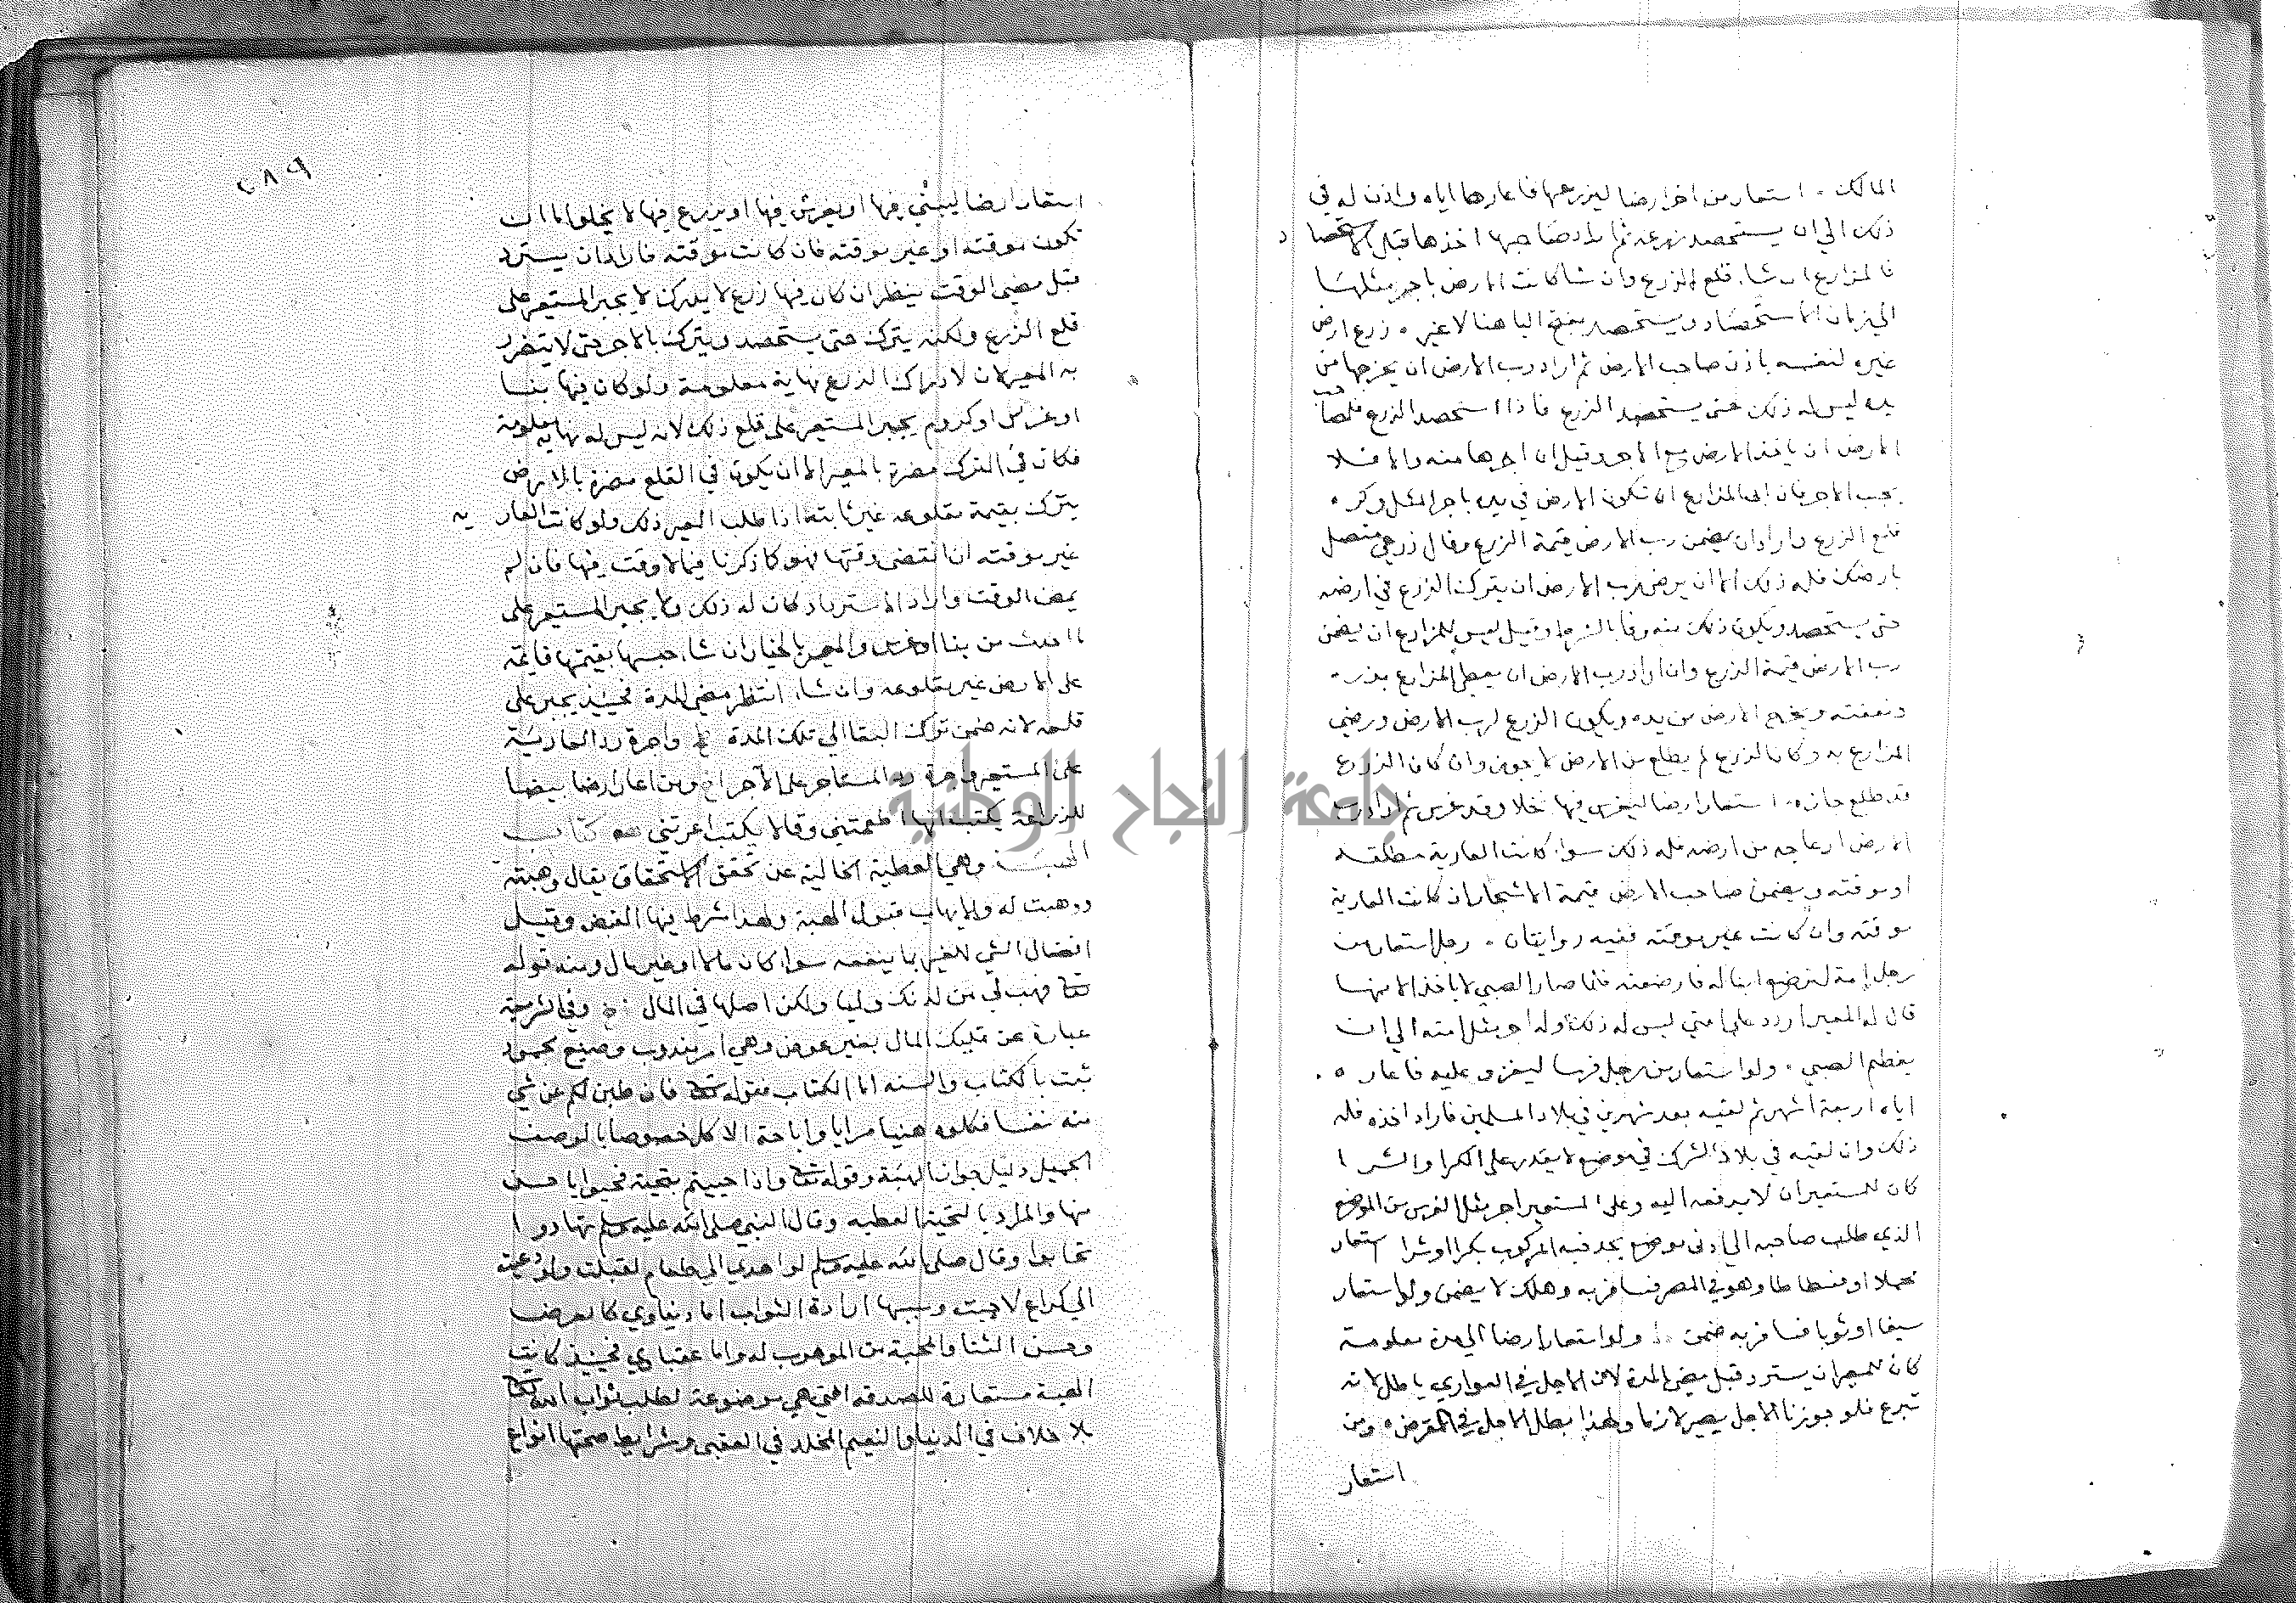 المالك ۰ استعار من اخر ارضا ليزرعها فاعارها اياه واذن له في
ذلك الي ان يستحصد زرعه ثم اراد صاحبها اخذها قبل الاستحصاد
فالمزارع ان شاء قلع الزرع وان شا كانت الارض باجر مثلها
الي زمان الاستحصاد ويستحصد بفتح اليا هنا لا غير ۰ زرع ارض
غيره لنفسه باذن صاحب الارض ثم اراد رب الارض ان يخرجها من
يده ليس له ذلك حتى يستحصد الزرع فاذا استحصد الزرع فلصاحب
الارض ان ياخذ الارض مع الاجر وقيل ان اجرها منه والا فلا
يجب الاجر فان ابى المزارع ان تكون الارض في يده باجر المثل وكره
قلع الزرع واراد ان يضمن رب الارض قيمة الزرع وقال زرعي متصل
بارضك فله ذلك الا ان يرضى رب الارض ان يترك الزرع في ارضه
حتى يستحصد ويكون ذلك منه وفا بالشرط وقيل ليس للمزارع ان يضمن
رب الارض قيمة الزرع وان اراد رب الارض ان يعطي المزارع بذره
ونفقته ويخرج الارض من يده ويكون الزرع لرب الارض ورضي
المزارع به وكان الزرع لم يطلع من الارض لا يجوز وان كان الزرع
قد طلع جاز ۰ استعار ارضا ليغرس فيها نخلا وقد غرس ثم اراد رب
الارض ازعاجه من ارضه فله ذلك سوا كانت العارية مطلقة
او موقته ويضمن صاحب الارض قيمة الاشجار ان كانت العارية
موقته وان كانت غير موقته ففيه روايتان ۰ رجل استعار من
رجل امة لترضع ابنا له فارضعته فلما صار الصبي لا ياخذ الا منها
قال له المعير اردد علي امتي ليس له ذلك وله اجر مثل امته الي ان
يفطم الصبي ۰ ولو استعار من رجل فرسا ليغزو عليه فاعاره
اياه اربعة اشهر ثم لقيه بعد شهرين في بلاد المسلمين فاراد اخذه فله
ذلك وان لقيه في بلاد الشرك في موضع لا يقدر على الكرا والشرا
كان للمستعير ان لا يدفعه اليه وعلى المستعير اجر مثل الفرس من الموضع
الذي طلب صاحبه الي ادنى موضع يجد فيه المركوب بكرا او شرا استعار
محملا او فسطاطا وهو في المصر فسافر به وهلك لا يضمن ولو استعار
سيفا او ثوبا فسافر به ضمن ولو استعار ارضا الي مدة معلومة
كان للمعير ان يسترد قبل مضي المدة لان الاجل في العواري باطل لانه
تبرع فلو جوزنا الاجل يصير لازما ولهذا بطل الاجل في القرض ۰ ومن
استعار
٢٨٩
استعار ارضا ليبني فيها او يغرس فيها او يزرع فيها لا يخلو اما ان
تكون موقته او غير موقته فان كانت موقته فاراد ان يسترد
قبل مضي الوقت ينظر ان كان فيها زرع لا يدرك لا يجبر المستعير على
قلع الزرع ولكنه يترك حتى يستحصد ويترك بالاجر حتى لا يتضرر
به المعير لان لادراك الزرع نهاية معلومة ولو كان فيها بنا
او غرس او كروم يجبر المستعير على قلع ذلك لانه ليس له نهاية معلومة
فكان في الترك مضرة بالمعير الا ان يكون في القلع مضرة بالارض
يترك بقيمة مقلوعه غير ثابته اذا طلب المعير ذلك ولو كانت العارية
غير موقته ان انقضى وقتها فهو كما ذكرنا فيما لا وقت فيها فان لم
يمض الوقت واراد الاسترداد كان له ذلك ولا يجبر المستعير على
ما احدث من بنا او غرس والمعير بالخيار ان شاء حبسها بقيمتها قايمة
على الارض غير مقلوعه وان شاء انتظر مضي المدة فحينئذ يجبر على
قلعه لانه ضمن ترك البقا الي تلك المدة واجرة رد العارية
على المستعير واجرة رد المستاجر على الاجر ومن اعار ارضا بيضا
للزراعة يكتب انها اطعمتني وقالا يكتب اعرتني كتاب
الهبة وهي العطية الخالية عن تحقق الاستحقاق يقال وهبته
ووهبت له والايهاب قبول الهبة ولهذا شرط فيها القبض وقيل
افضال الشي للغير بما ينفعه سوا كان مالا او غير مال ومنه قوله
تعالى فهب لي من لدنك وليا ولكن اصلها في المال وفي الشرعية
عبارة عن تمليك المال بغير عوض وهي امر مندوب وصنع محمود
ثبت بالكتاب والسنه اما الكتاب فقوله تعالى فان طبن لكم عن شي
منه نفسا فكلوه هنيا مرايا واباحة الاكل خصوصا بالوصف
الجميل دليل جواز الهبة وقوله تعالى واذا حييتم بتحية فحيوا باحسن
منها والمراد بالتحية العطيه وقال النبي صلى الله عليه وسلم تهادوا
تحابوا وقال صلى الله عليه وسلم لو اهدي الي طعام لقبلت ولو دعيت
الي كراع لاجبت وسببها ارادة الثواب اما دنياوي كالعرض
وحسن الثنا والمحبة من الموهوب له واما عقباوي فحينئذ كانت
الهبة مستعارة للصدقه التي هي موضوعة لطلب ثواب الله تعالى
بلا خلاف في الدنيا والنعيم المخلد في العقبى وشرايط صحتها انواع
جامعة النجاح الوطنية